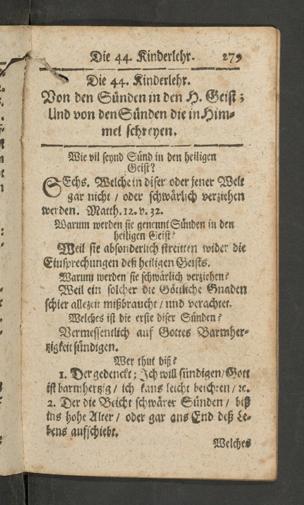 Die 44. Kinderlehr. 279
Die 44. Kinderlehr.
Von den Sünden in den H. Geist;
Und von den Sünden die in Him-
mel schreyen.
Wie vil seynd Sünd in den heiligen
Geist?
SEchs. Welche in diser oder jener Welt
gar nicht / oder schwärlich verziehen
werden. Matth. 12. v. 32.
Warum werden sie genennt Sünden in den
heiligen Geist?
Weil sie absonderlich streitten wider die
Einsprechungen deß heiligen Geists.
Warum werden sie schwärlich verziehen?
Weil ein solcher die Göttliche Gnaden
schier allezeit mißbraucht / und verachtet.
Welches ist die erste diser Sünden?
Vermessentlich auf Gottes Barmher-
tzigkeit sündigen.
Wer thut diß?
1. Der gedenckt; Ich will sündigen / Gott
ist barmhertzig / ich kans leicht beichten / ꝛc.
2. Der die Beicht schwärer Sünden / biß
ins hohe Alter / oder gar ans End deß Le-
bens aufschiebt.
Welches